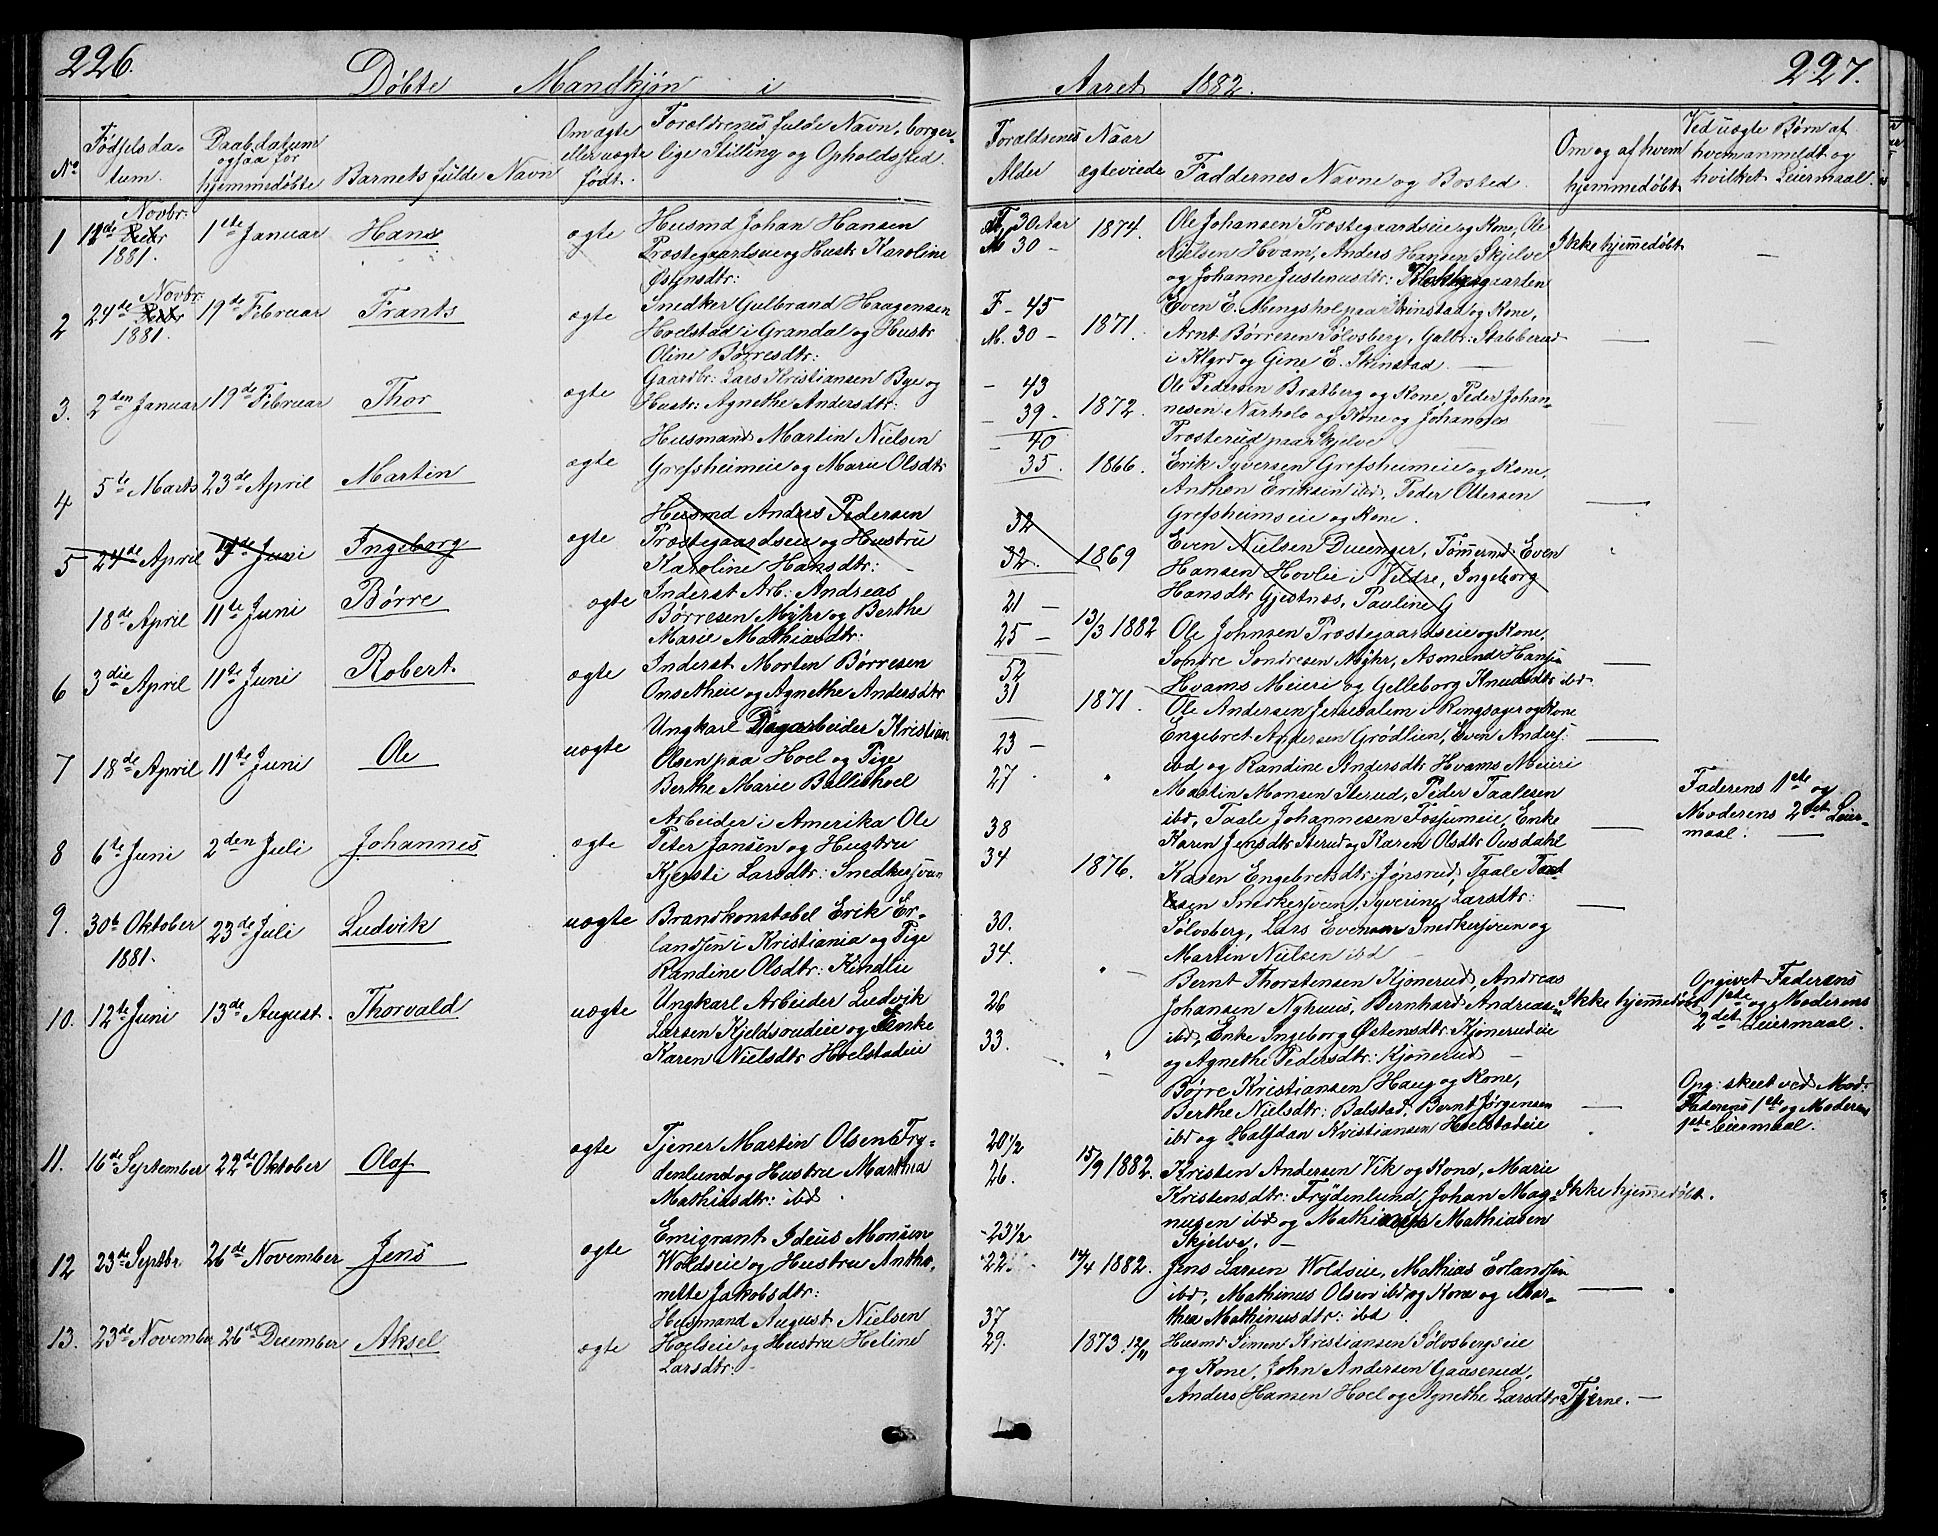 226.
Døbte Mandkjøn i
No
Fødselsda-
tum.
Daabdatum
ogsaa for
hjemmedøbte
Barnets fulde Navn
Om ægte
eller uægte
født.
Forældrenes fulde Navn, borger-
lige Stilling og Opholdssted.
1
Novbr:
1881.
1ste Januar
Hans
ægte
Husmd Johan Hansen
Præstegaardseie og Hustr Karoline
Østensdtr:
2
24de Novbr:
1881.
19de Februar
Frants
ægte
Snedker Gulbrand Haagensen
Hoelstad i Grandal og Hustr
Oline Børresdtr:
3.
2den Januar
19de Februar
Thor
ægte
Gaardbr: Lars Kristiansen Bye og
Hustr: Agnethe Andersdtr:
4
5te Marts
23de April
Martin
ægte
Husmand Martin Nielsen
Grefsheimeie og Marie Olsdtr
5
24de April
Juni
Ingeborg
ægte
Husmd Anders Pedersen
Præstegaardseie og Hustru
Karoline Hansdtr:
18de April
11te Juni
Børre
ægte
Inderst Arb: Andreas
Børresen Myhr og Berthe
Marie Mathiasdtr:
6
3die April
11te Juni
Robert.
ægte
Inderst Morten Børresen
Onsetheie og Agnethe Andersdtr
7
18de April
11te Juni
Ole
uægte
Ungkarl Dagarbeider Kristian
Olsen paa Hoel og Pige
Berthe Marie Ballishoel
8
6te Juni
2den Juli
Johannes
ægte
Arbeider i Amerika Ole
Peter Jansen og Hustru
Kjersti Larsdtr: Snedkersveen
9.
30te Oktober
1881.
23de Juli
Ludvik
uægte
Brandkonstabel Erik Er-
landsen i Kristiania og Pige
Randine Olsdtr: Kindlie
10.
12te Juni
13de August.
Thorvald
uægte
Ungkarl Arbeider Ludvik
Larsen Kjeldsrudeie og Enke
Karen Nielsdtr Hoelstadeie
11.
16de September
22de Oktober
Olaf
ægte
Tjener Martin Olsen Fry-
denlund og Hustru Marthea
Mathiasdtr: ibd.
12
23de Septbr
26de November
Jens
ægte
Emigrant Ideus Monsen
Woldseie og Hustru Antho-
nette Jakobsdtr:
13.
23de November
26de December
Aksel
ægte
Husmand August Nielsen
Hoelseie og Hustru Heline
Larsdtr:
227.
Aaret 1882.
Forældrenes
Alder
Naar
ægteviede
Faddernes Navne og Bosted.
Om og af hvem
hjemmedøbt
Ved uægte Børn af
hvem anmeldt og
hvilket Leiermaal.
F. 30 Aar
M 30 -
1874.
Ole Johansen Præstegaardseie og Kone, Ole
Nielsen Hvam, Anders Hansen Skjelve
og Johanne Justenusdtr:
Ikke hjemmedøbt
F - 45
M. 30 -
1871.
Even E. Mengshol paa Skinstad og Kone,
Arnt Børresen Sølvsberg, Gulbr: Stabberud
i Klgrd og Gine E. Skinstad.
43
39 -
1872.
Ole Pedersen Bratberg og Kone, Peder Johan-
nesen Narholo og Kone og Johannes
Prosterud paa Skjelve
40
35.
1866.
Erik Syversen Grefsheimeie og Kone,
Anthon Eriksen ibd, Peder Ottersen
Grefsheimseie og Kone.
32
32.
1869
Even Nielsen Duenger, Tømermd Even
Hansen Hovlie i Veldre, Ingeborg
Hansdtr Gjestnæs, Pauline G
21 -
25 -
13/3 1882
Ole Johnsen Præstegaardseie og Kone,
Søndre Sondresen Myhr, Asmund Hansen
Hvams Meieri og Gelleborg Knudsdtr ibd.
52
31
1871.
Ole Andersen Jerusalem i Ringsager og Kone
Engebret Andersen Grødlien, Even Anders:
ibd og Randine Andersdtr Hvams Meieri
23 -
27
Martin Monsen Sterud, Peder Taalesen
ibd, Taale Johannesen Fossumeie, Enke
Karen Jensdtr Sterud og Karen Olsdtr Ovsdahl
Faderens 1ste og
Moderens 2det Leier-
maal.
38
34
1876.
Karen Engebretsdtr: Jønsrud, Taale Taal-
esen Snedkersveen, Syverine Larsdtr:
Sølvsberg, Lars Evensen Snedkersveen og
Martin Nielsen ibd
30.
34.
Bernt Thorstensen Kjønerud, Andreas
Johansen Nyhuus, Bernhard Andreasen
ibd, Enke Ingeborg Østensdtr Kjønerudeie
og Agnethe Pedersdtr: Kjønerud
Ikke hjemmedøbt
Opgivet Faderens
1ste og Moderens
2det Leiermaal.
26
33.
Børre Kristiansen Haug og Kone,
Berthe Nielsdtr: Balstad, Bernt Jørgensen
ibd og Halfdan Kristiansen Hoelstadeie
Opg: skeet ved Mod.
Faderens 1ste og Moderens
1ste Leiermaal.
20 1/2
26.
15/9 1882.
Kristen Andersen Vik og Kone, Marie
Kristensdtr: Frydenlund, Johan Mag-
nusen ibd og Mathias Mathiasen
Skjelve.
Ikke hjemmedøbt.
23 1/2
22
14/4 1882.
Jens Larsen Woldseie, Mathias Erlandsen
ibd, Mathinus Olsen ibd og Kone og Mar-
thea Mathinusdtr: ibd.
37
29.
1873. 12/11
Husmd Simen Kristiansen Sølvsbergseie
og Kone, John Andersen Gaaserud,
Anders Hansen Hoel og Agnethe Larsdtr Tjerne.